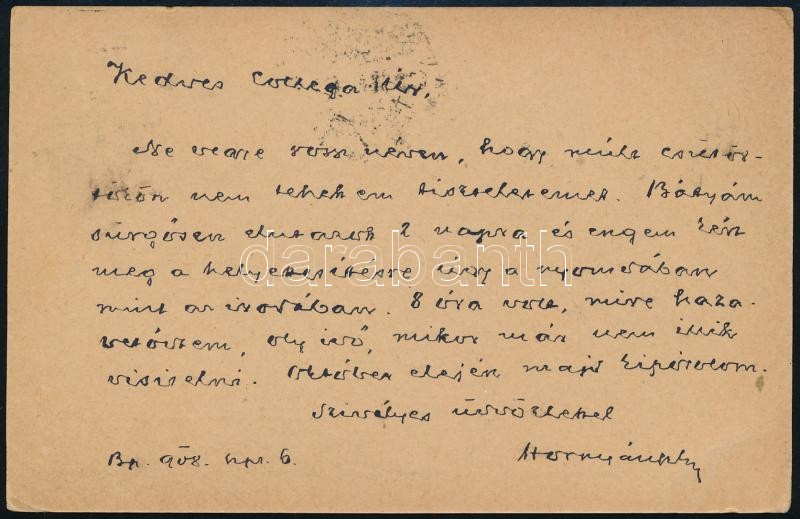 Kedves Collega Úr,
Ne vegye rossz néven, hogy múlt csütör-
tökön nem tehettem tiszteletemet. Bátyám
sürgősen elutazott 2 napra és engem kért
meg a helyettesítésre úgy a nyomdában
mint az irodában. 8 óra volt, mire haza-
vetődtem, oly idő, mikor már nem illik
visitelni. Október elején majd kipótolom.
Szivélyes üdvözlettel
Bp. 908. 6. Hornyánszky
darabanth